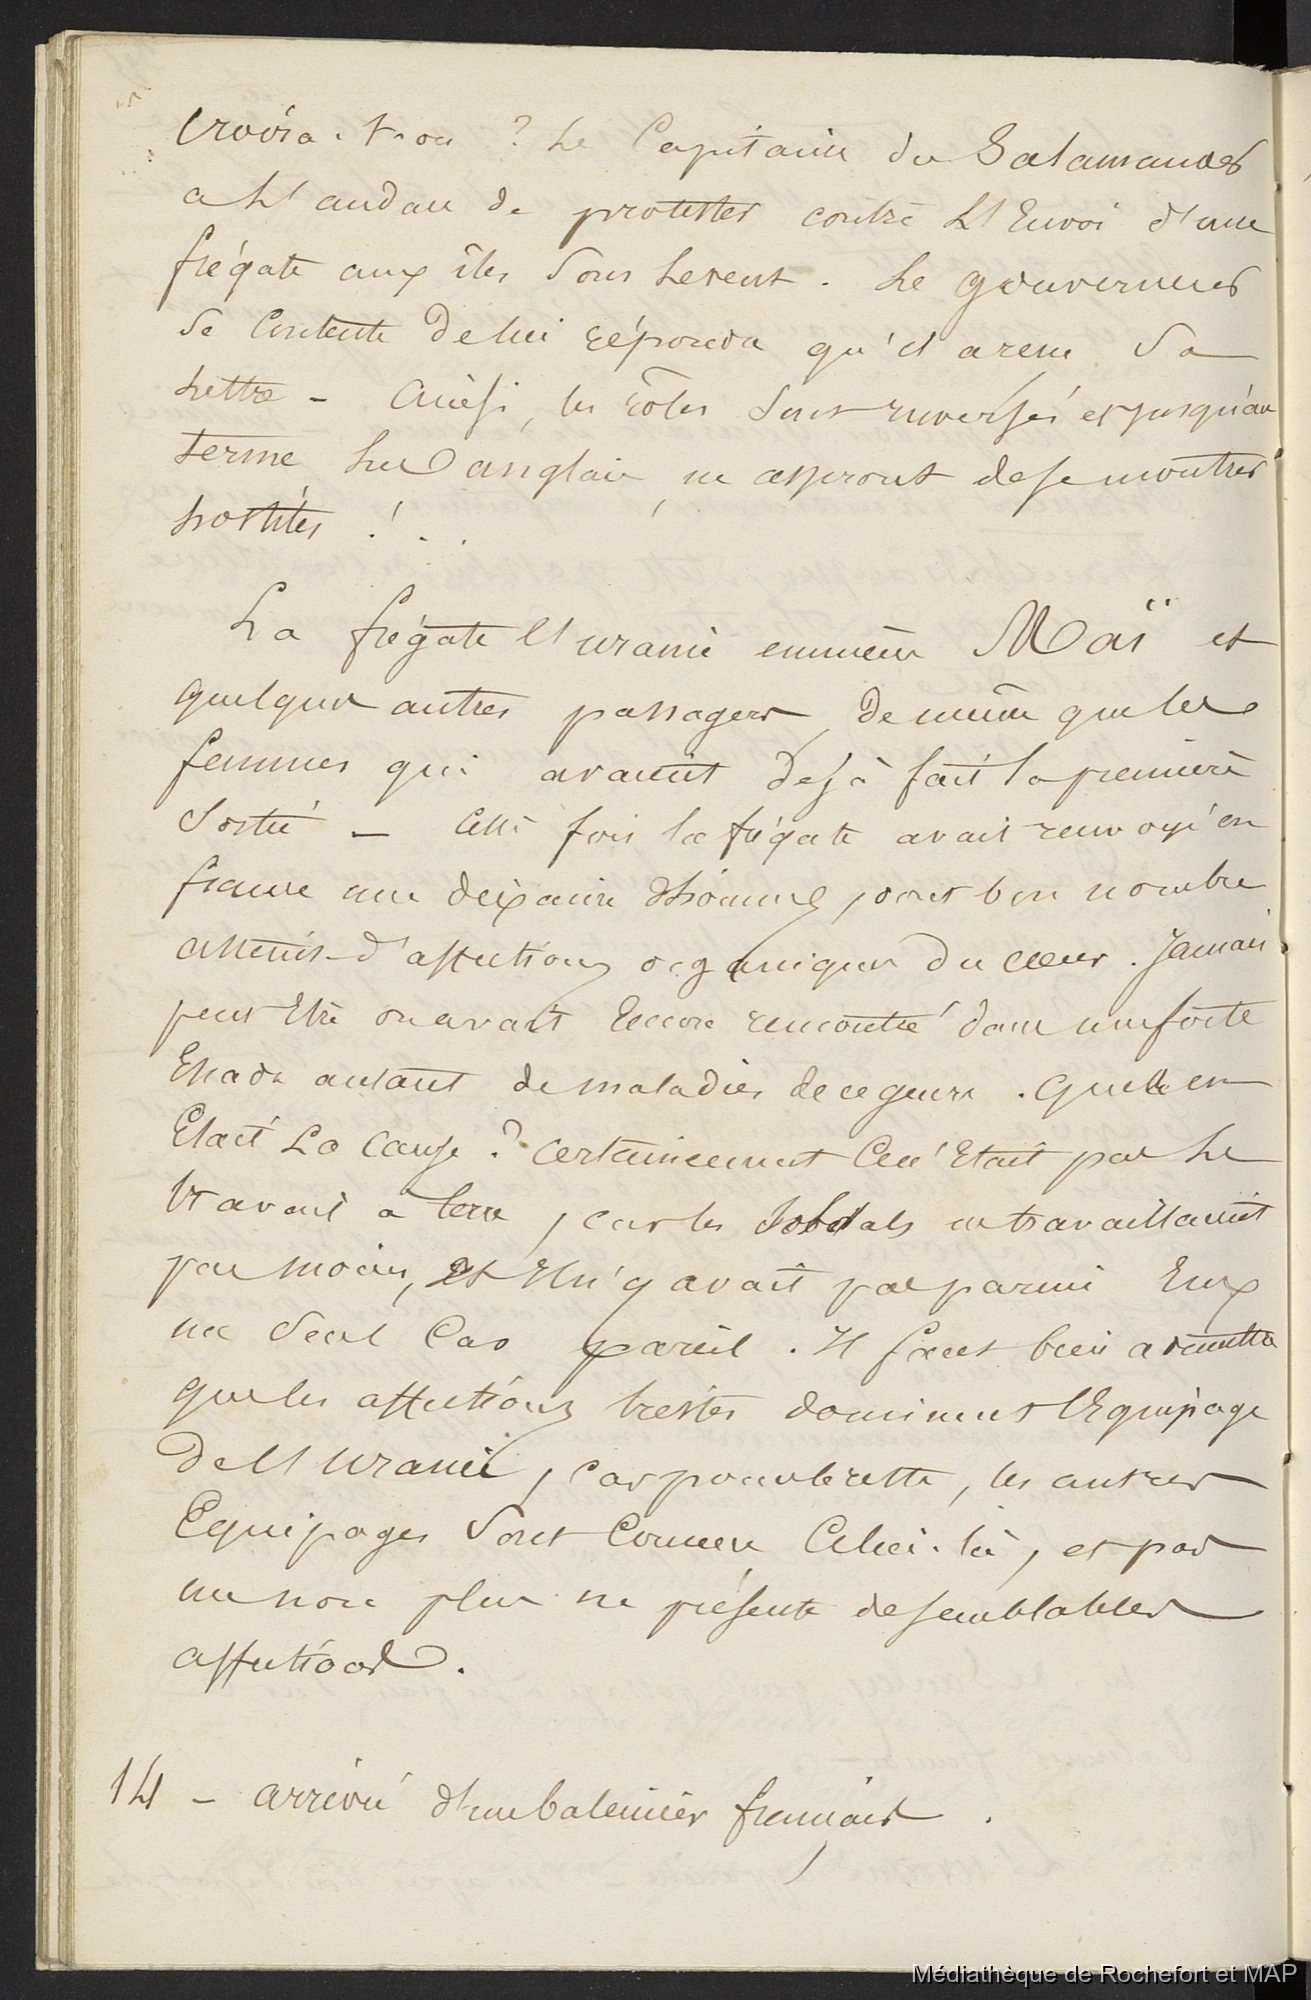 Croira-t-on ? Le Capitaine du Salamander
a l'audace de protester contre l'Envoi d'une
frégate aux îles Sous le vent. Le gouverneur
Se Contente de lui répondre qu'il a reçu Sa
lettre - Ainsi, les rôles Sont renversés et jusqu'au
terme les anglais ne cesseront de se montrer
hostiles ! . .
La frégate l'uranie emmène Maï et
quelques autres passagers, de même que les
femmes qui avaient déjà fait la première
Sortie - Cette fois la frégate avait renvoyé en
france une dizaine d'hommes, dont bon nombre
atteints d'affections organiques du coeur. Jamais
peut être on avait Encore rencontré dans une forte
Escadre autant de maladies de ce genre. quelle en
Etait La Cause ? certainement Ce n'Etait pas Le
travail à terre, car les Soldats ne travaillaient
pas moins, et Il n'y avait pas parmi Eux
un Seul Cas pareil. Il faut bien admettre
que les affections tristes dominent l'Equipage
de l'uranie, car pour le reste, les autres
Equipages Sont Comme Celui-là, et pas
un non plus ne présente de semblables
affections.
14 - arrivée d'un baleinier français.
Médiathèque de Rochefort et MAP